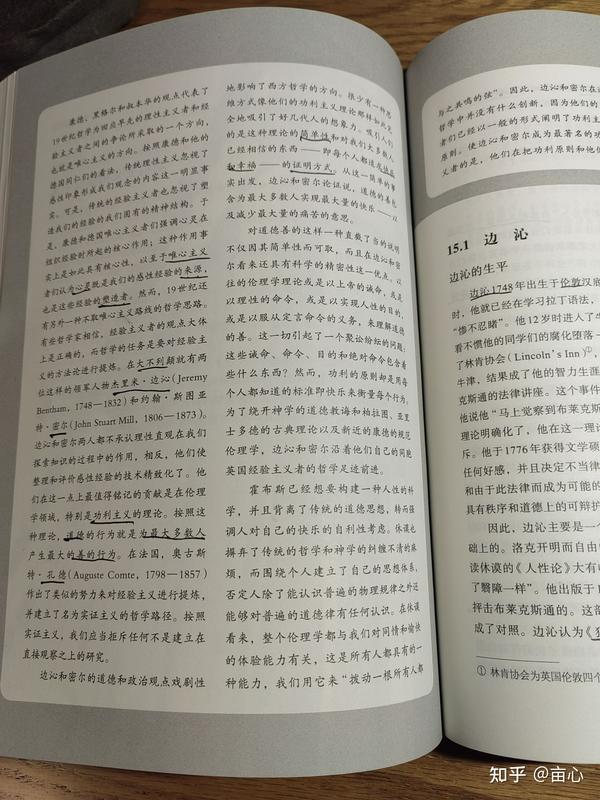 康德、黑格尔和叔本华的观点代表了
19世纪哲学为回应早先的理性主义者和经
验主义者之间的争论所采取的一个方向，
也就是唯心主义的方向。按照康德和他的
德国同仁们的看法，传统理性主义忽视了
感性印象形成我们观念的内容这一明显事
实。可是，传统的经验主义者也忽视了塑
造我们的经验的我们固有的精神结构。于
是，康德和德国唯心主义者们强调心灵在
组织经验时所起的核心作用；这种作用事
实上是如此具有核心性，以至于唯心主义
者们认为心灵既是我们的感性经验的来源，
也是这些经验的塑造者。然而，19世纪还
有另外一种不取唯心主义路线的哲学思路。
有些哲学家相信，经验主义者的观点大体
上是正确的，而哲学的任务是要对经验主
义的方法论进行提炼。在大不列颠就有两
位这样的领军人物杰里米·边沁（Jeremy
Bentham，1748—1832）和约翰·斯图亚
特·密尔（John Stuart Mill，1806—1873）。
边沁和密尔两人都不承认理性直观在我们
探索知识的过程中的作用，相反，他们使
整理和评价感性经验的技术精致化了。他
们在这一点上最值得铭记的贡献是在伦理
学领域，特别是功利主义的理论。按照这
种理论，道德的行为就是为最大多数人
产生最大的善的行为。在法国，奥古斯
特·孔德（Auguste Comte，1798—1857）
作出了类似的努力来对经验主义进行提炼，
并建立了名为实证主义的哲学路径。按照
实证主义，我们应当拒斥任何不是建立在
直接观察之上的研究。
边沁和密尔的道德和政治观点戏剧性
地影响了西方哲学的方向。很少有一种思
维方式像他们的功利主义理论那样如此完
全地吸引了好几代人的想象力。吸引人们
的是这种理论的简单性和对我们大多数人
已经相信的东西——即每个人都追求快乐
和幸福——的证明方式。从这一简单的事
实出发，边沁和密尔论证说，道德的善包
含为最大多数人实现最大量的快乐——以
及减少最大量的痛苦的意思。
对道德善的这样一种直截了当的说明
不仅因其简单性而可取，而且在边沁和密
尔看来还具有科学的精密性这一优点。以
往的伦理学理论或是以上帝的诫命，或是
以理性的命令，或是以实现人性的目的，
或是以服从定言命令的义务，来理解道德
的善。这一切引起了一个聚讼纷纭的问题：
这些诫命、命令、目的和绝对命令包含着
些什么东西？然而，功利的原则却是用每
个人都知道的标准即快乐来衡量每个行为。
为了绕开神学的道德教诲和柏拉图、亚里
士多德的古典理论以及新近的康德的规范
伦理学，边沁和密尔沿着他们自己的同胞
英国经验主义者的哲学足迹前进。
霍布斯已经想要构建一种人性的科
学，并且背离了传统的道德思想，转而强
调人对自己的快乐的自利性考虑。休谟也
摒弃了传统的哲学和神学的纠缠不清的麻
烦，而围绕个人建立了自己的思想体系，
否定人除了能认识普遍的物理规律之外还
能够对普遍的道德律有任何认识。在休谟
看来，整个伦理学都与我们对同情和愉快
的体验能力有关，这是所有人都具有的一
种能力，我们用它来“拨动一根所有人都
与之共鸣的弦”。因此，边沁和密尔在道
哲学中并没有什么创新，因为他们的
者们已经以一般的形式阐明了功利主
原则。使边沁和密尔成为最著名的功
义者的是，他们在把功利原则和他们
15.1 边 沁
边沁的生平
边沁1748年出生于伦敦汉底
时，他就已经在学习拉丁语法，
“惨不忍睹”。他12岁时进入了牛
看不惯他的同学们的腐化堕落——
了林肯协会（Lincoln's Inn）①，
牛津，结果成了他的智力生涯
克斯通的法律讲座。这个事件
他说他“马上觉察到布莱克斯
理论明确化了，他在这一理论
斥。他于1776年获得文学硕
任何好感，并且决定不当律
和由于此法律而成为可能的
具有秩序和道德上的可辩护
因此，边沁主要是一个
础上的。洛克开明而自由
读休谟的《人性论》大有收
了翳障一样”。他出版于1
抨击布莱克斯通的。这部
成了对照。边沁认为《独
① 林肯协会为英国伦敦四个
知乎 @亩心